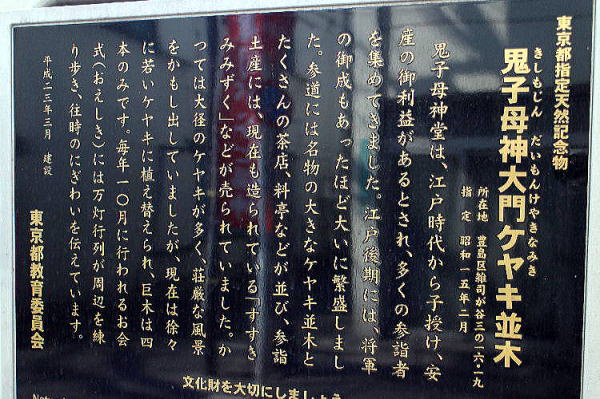 東京都指定天然記念物
きしもじん だいもんけやきなみき
鬼子母神大門ケヤキ並木
所在地 豊島区雑司が谷三の一六・一九
指定 昭和一五年二月
鬼子母神堂は、江戸時代から子授け、安
産の御利益があるとされ、多くの参詣者
を集めてきました。江戸後期には、将軍
の御成もあったほど大いに繁盛しまし
た。参道には名物の大きなケヤキ並木と
たくさんの茶店、料亭などが並び、参詣
土産には、現在も造られている「すすき
みみずく」などが売られていました。か
つては大径のケヤキが多く、荘厳な風景
をかもし出していましたが、現在は徐々
に若いケヤキに植え替えられ、巨木は四
本のみです。毎年一〇月に行われるお会
式(おえしき)には万灯行列が周辺を練
り歩き、往時のにぎわいを伝えています。
平成二三年三月 建設
東京都教育委員会
文化財を大切にしましょう